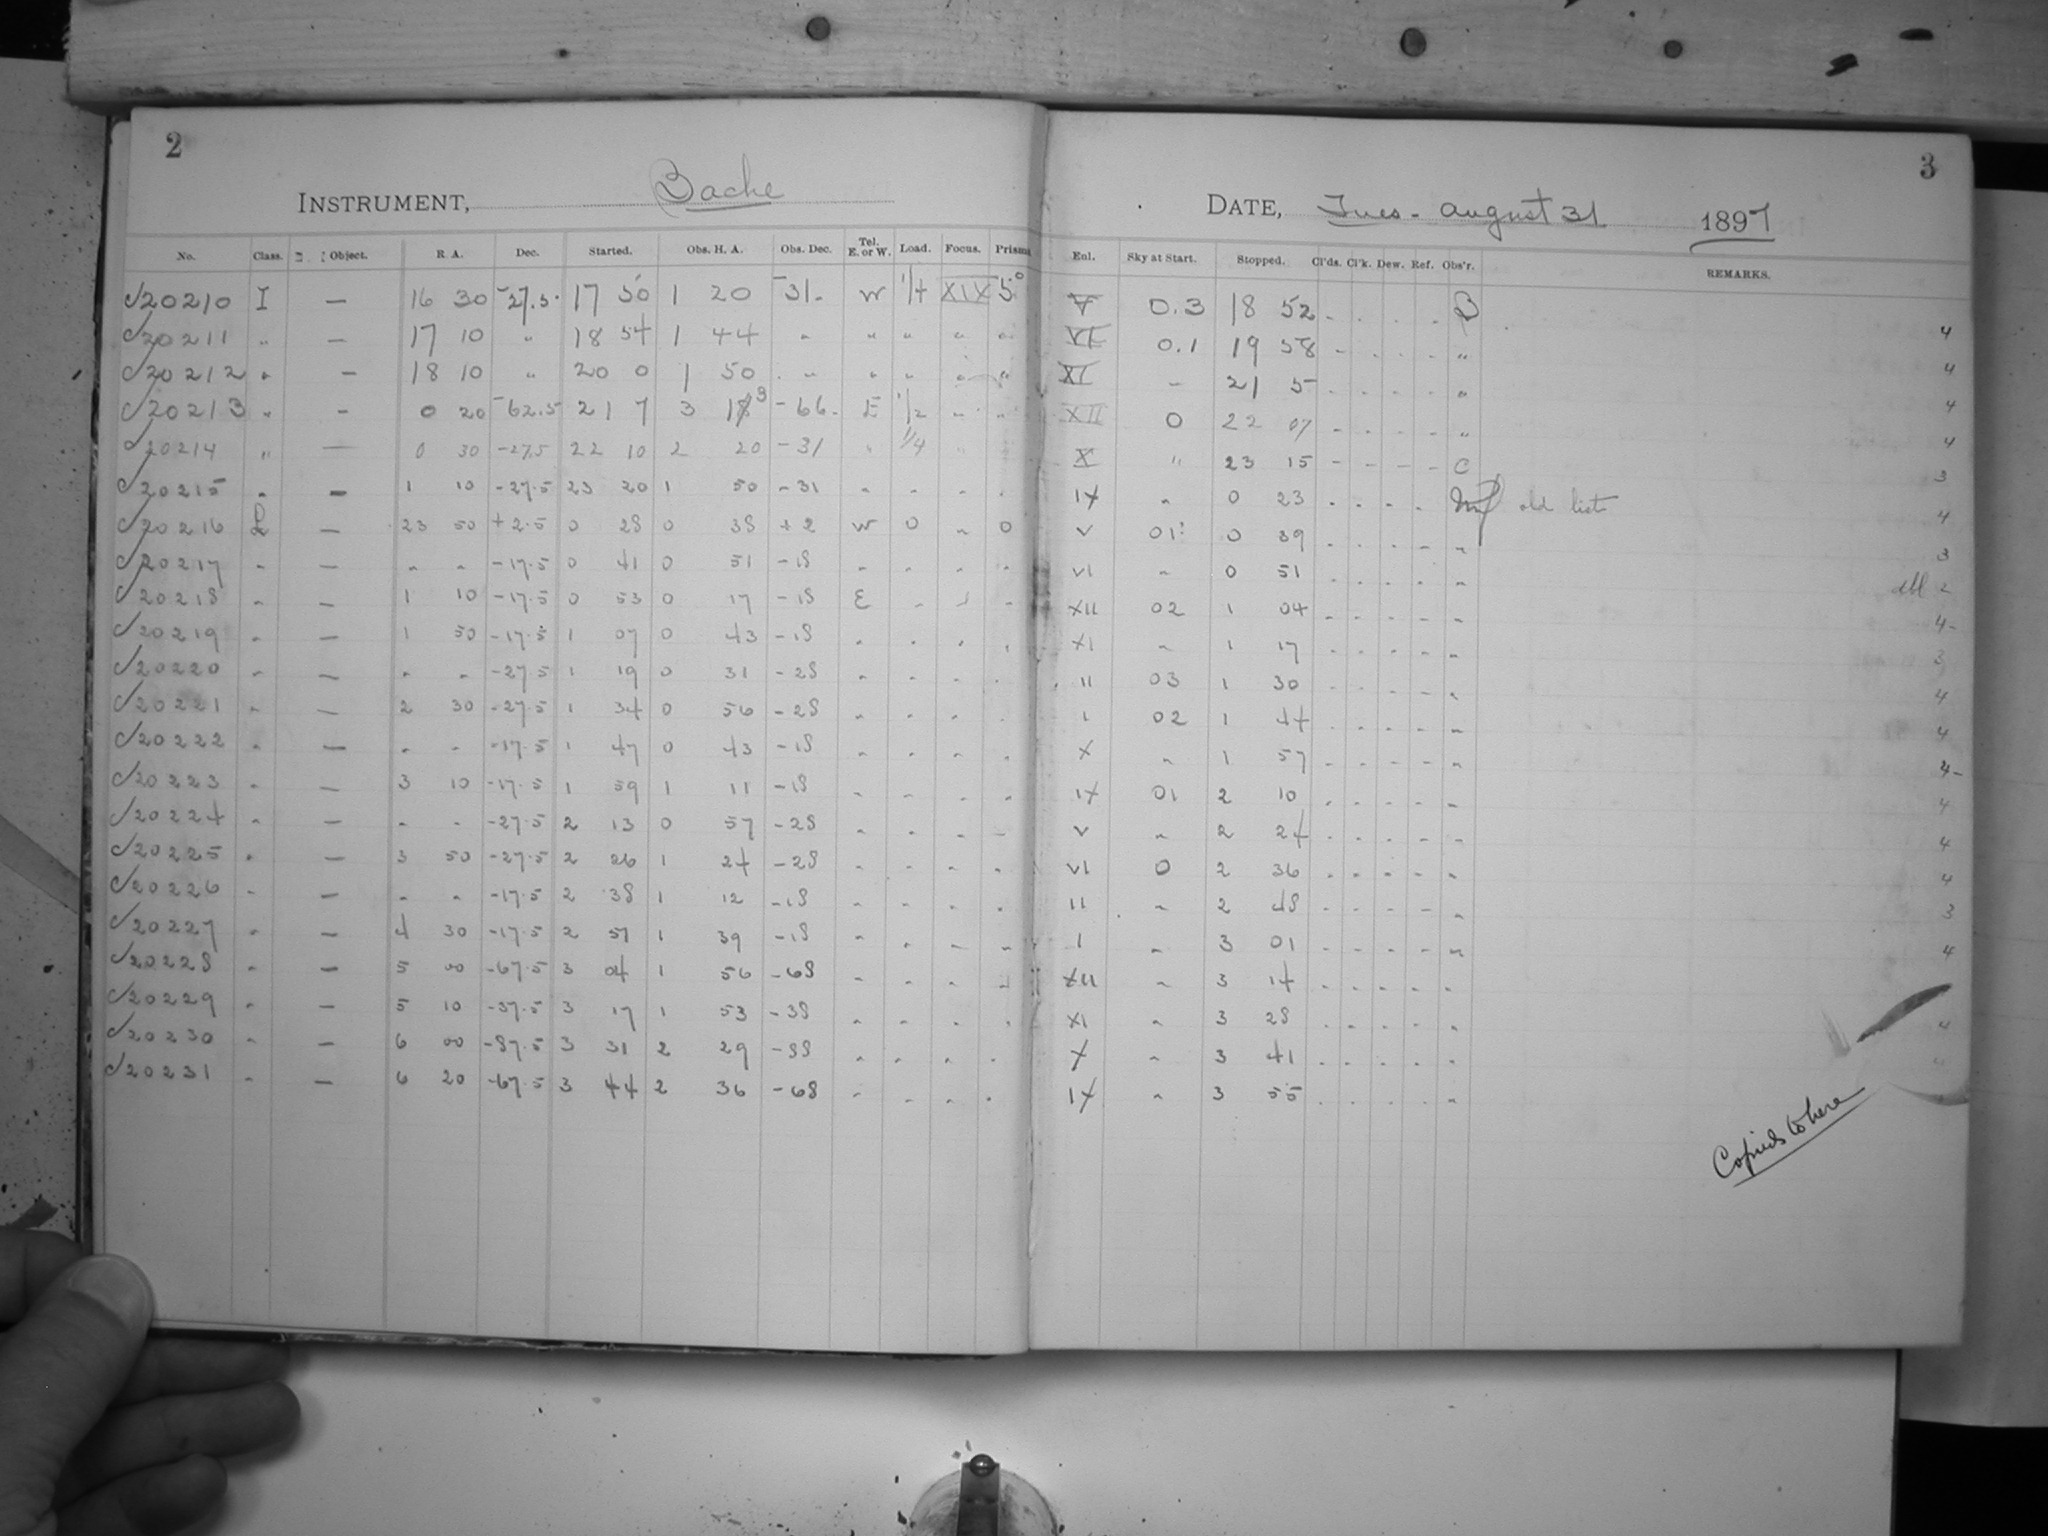 2
INSTRUMENT, Bache
No. Class. Object. R. A. Dec. Started. Obs. H. A. Obs. Dec. Tel. E. or W. Load. Focus. Prism
√20210 I — 16 30 -27.5 17 50 1 20 -31. W 1/4 XIX 5°
√20211 " — 17 10 " 18 54 1 44 " " " " "
√20212 " — 18 10 " 20 0 1 50 " " " " "
√20213 " — 0 20 -62.5 21 7 3 13 -66. E 1/2 " "
√20214 " — 0 30 -27.5 22 10 2 20 -31 " 1/4 " "
√20215 " — 1 10 -27.5 23 20 1 50 -31 " " " "
√20216 L — 23 50 +2.5 0 28 0 38 +2 W 0 " 0
√20217 " — " " -17.5 0 41 0 51 -18 " " " "
√20218 " — 1 10 -17.5 0 53 0 17 -18 E " " "
√20219 " — 1 50 -17.5 1 07 0 43 -18 " " " "
√20220 " — " " -27.5 1 19 0 31 -28 " " " "
√20221 " — 2 30 -27.5 1 34 0 56 -28 " " " "
√20222 " — " " -17.5 1 47 0 43 -18 " " " "
√20223 " — 3 10 -17.5 1 59 1 11 -18 " " " "
√20224 " — " " -27.5 2 13 0 57 -28 " " " "
√20225 " — 3 50 -27.5 2 26 1 24 -28 " " " "
√20226 " — " " -17.5 2 38 1 12 -18 " " " "
√20227 " — 4 30 -17.5 2 51 1 39 -18 " " " "
√20228 " — 5 00 -67.5 3 04 1 56 -68 " " " "
√20229 " — 5 10 -37.5 3 17 1 53 -38 " " " "
√20230 " — 6 00 -87.5 3 31 2 29 -88 " " " "
√20231 " — 6 20 -67.5 3 44 2 36 -68 " " " "
3
DATE, Tues - August 31 1897
Enl. Sky at Start. Stopped. Cl'ds. Cl'k. Dew. Ref. Obs'r. REMARKS.
V 0.3 18 52 - - - - B 4
VI 0.1 19 58 - - - - " 4
XI - 21 5 - - - - " 4
XII 0 22 07 - - - - " 4
X " 23 15 - - - - C 3
IX " 0 23 - - - - old list 4
V 01: 0 39 - - - - " 3
VI " 0 51 - - - - " 2
XII 02 1 04 - - - - " 4-
XI " 1 17 - - - - " 3
II 03 1 30 - - - - " 4
I 02 1 44 - - - - " 4
X " 1 57 - - - - " 4-
IX 01 2 10 - - - - " 4
V " 2 24 - - - - " 4
VI 0 2 36 - - - - " 4
II " 2 48 - - - - " 3
I " 3 01 - - - - " 4
XII " 3 14 - - - - "
XI " 3 28 - - - - " 4
X " 3 41 - - - - "
IX " 3 55 - - - - "
Copied to here